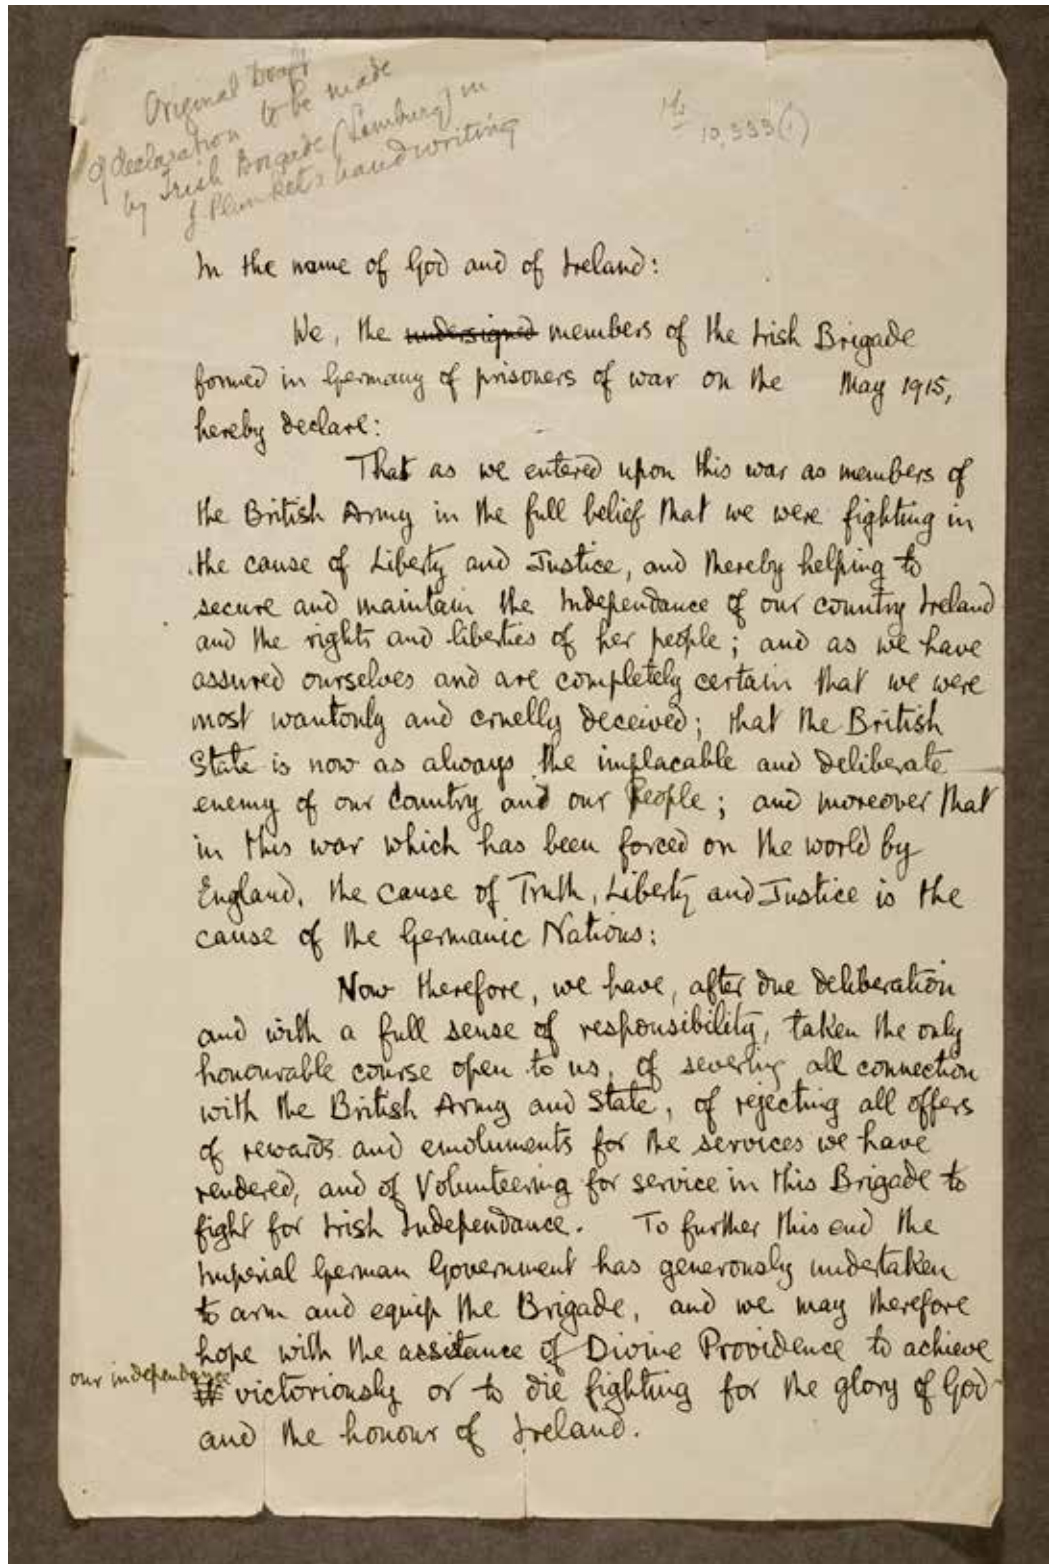 Original Draft
of declaration to be made
by Irish Brigade (Limburg) in
J Plunket's handwriting
Ms
10,999(1)
In the name of God and of Ireland:
We, the undersigned members of the Irish Brigade
formed in Germany of prisoners of war on the May 1915,
hereby declare:
That as we entered upon this war as members of
the British Army in the full belief that we were fighting in
the cause of Liberty and Justice, and thereby helping to
secure and maintain the Independance of our country Ireland
and the rights and liberties of her people; and as we have
assured ourselves and are completely certain that we were
most wantonly and cruelly deceived; that the British
State is now as always the implacable and deliberate
enemy of our Country and our People; and moreover that
in this war which has been forced on the world by
England, the cause of Truth, Liberty and Justice is the
cause of the Germanic Nations:
Now therefore, we have, after due deliberation
and with a full sense of responsibility, taken the only
honourable course open to us, of severing all connection
with the British Army and State, of rejecting all offers
of rewards and emoluments for the services we have
rendered, and of Volunteering for service in this Brigade to
fight for Irish Independance. To further this end the
Imperial German Government has generously undertaken
to arm and equip the Brigade, and we may therefore
hope with the assitance of Divine Providence to achieve
our independance
it victoriously or to die fighting for the glory of God
and the honour of Ireland.